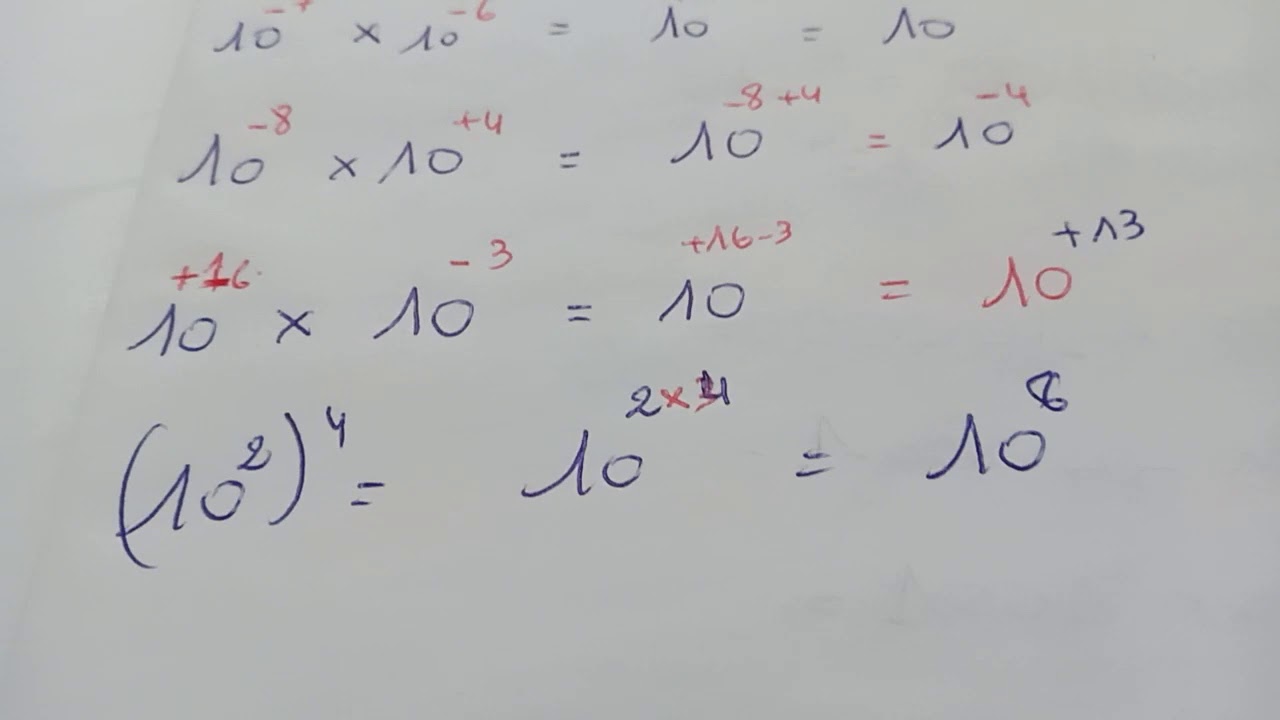 10 × 10⁻⁶ = 10 = 10
10⁻⁸ × 10⁺⁴ = 10⁻⁸⁺⁴ = 10⁻⁴
10⁺¹⁶ × 10⁻³ = 10⁺¹⁶⁻³ = 10⁺¹³
(10²)⁴ = 10²ˣ⁴ = 10⁸